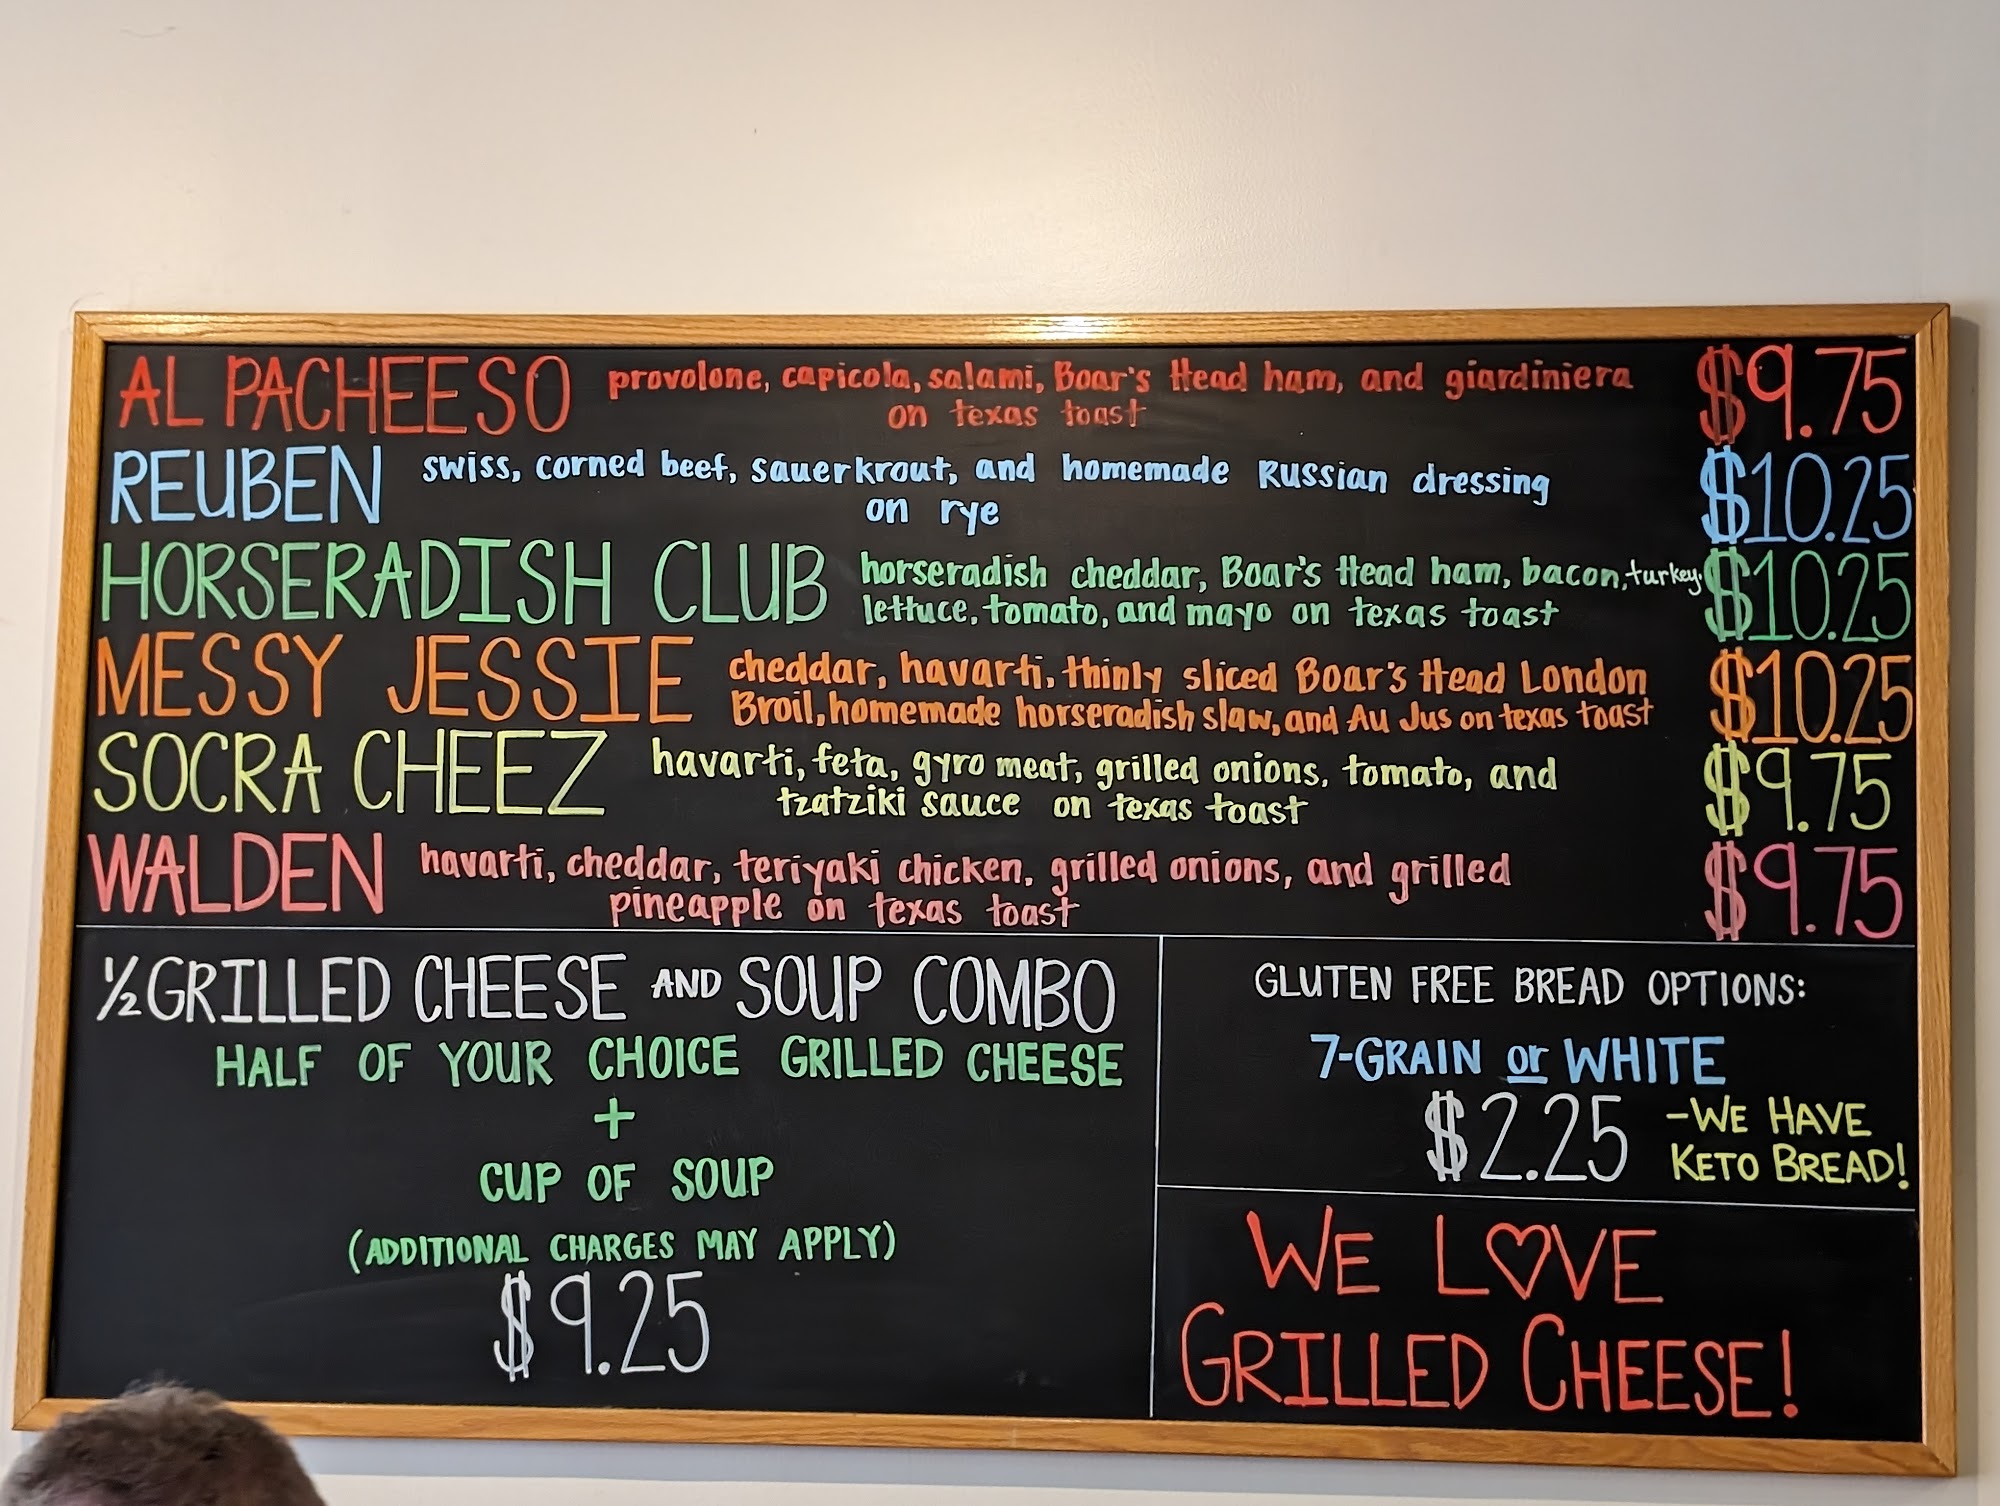 AL PACHEESO provolone, capicola, salami, Boar's Head ham, and giardiniera $9.75
on texas toast
REUBEN swiss, corned beef, sauerkrout, and homemade Russian dressing $10.25
on rye
HORSERADISH CLUB horseradish cheddar, Boar's Head ham, bacon, turkey, $10.25
lettuce, tomato, and mayo on texas toast
MESSY JESSIE cheddar, havarti, thinly sliced Boar's Head London $10.25
Broil, homemade horseradish slaw, and Au Jus on texas toast
SOCRA CHEEZ havarti, feta, gyro meat, grilled onions, tomato, and $9.75
tzatziki sauce on texas toast
WALDEN havarti, cheddar, teriyaki chicken, grilled onions, and grilled $9.75
pineapple on texas toast
½ GRILLED CHEESE AND SOUP COMBO
HALF OF YOUR CHOICE GRILLED CHEESE
+
CUP OF SOUP
(ADDITIONAL CHARGES MAY APPLY)
$9.25
GLUTEN FREE BREAD OPTIONS:
7-GRAIN or WHITE
$2.25
-WE HAVE
KETO BREAD!
WE LOVE
GRILLED CHEESE!